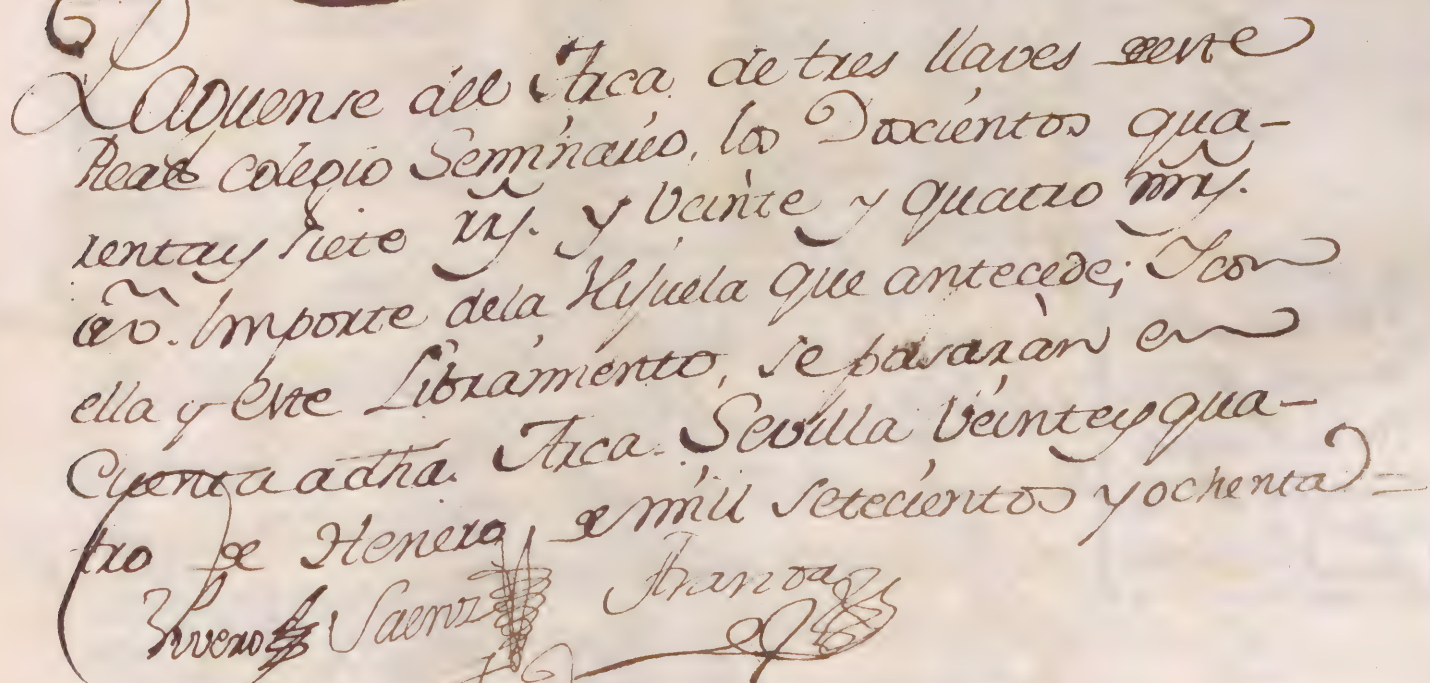 Saquense del Arca de tres llaves de este
Real Colegio Seminario, los Doscientos qua-
renta y siete rrs. y veinte y quatro mrs.
von. Importe de la Hijuela que antecede; Y con
ella y este Libramiento, se pasaràn en
Cuenta a dha. Arca. Sevilla veinte y qua-
tro de Henero de mill setecientos y ochenta=
Rivero Saenz Aranda